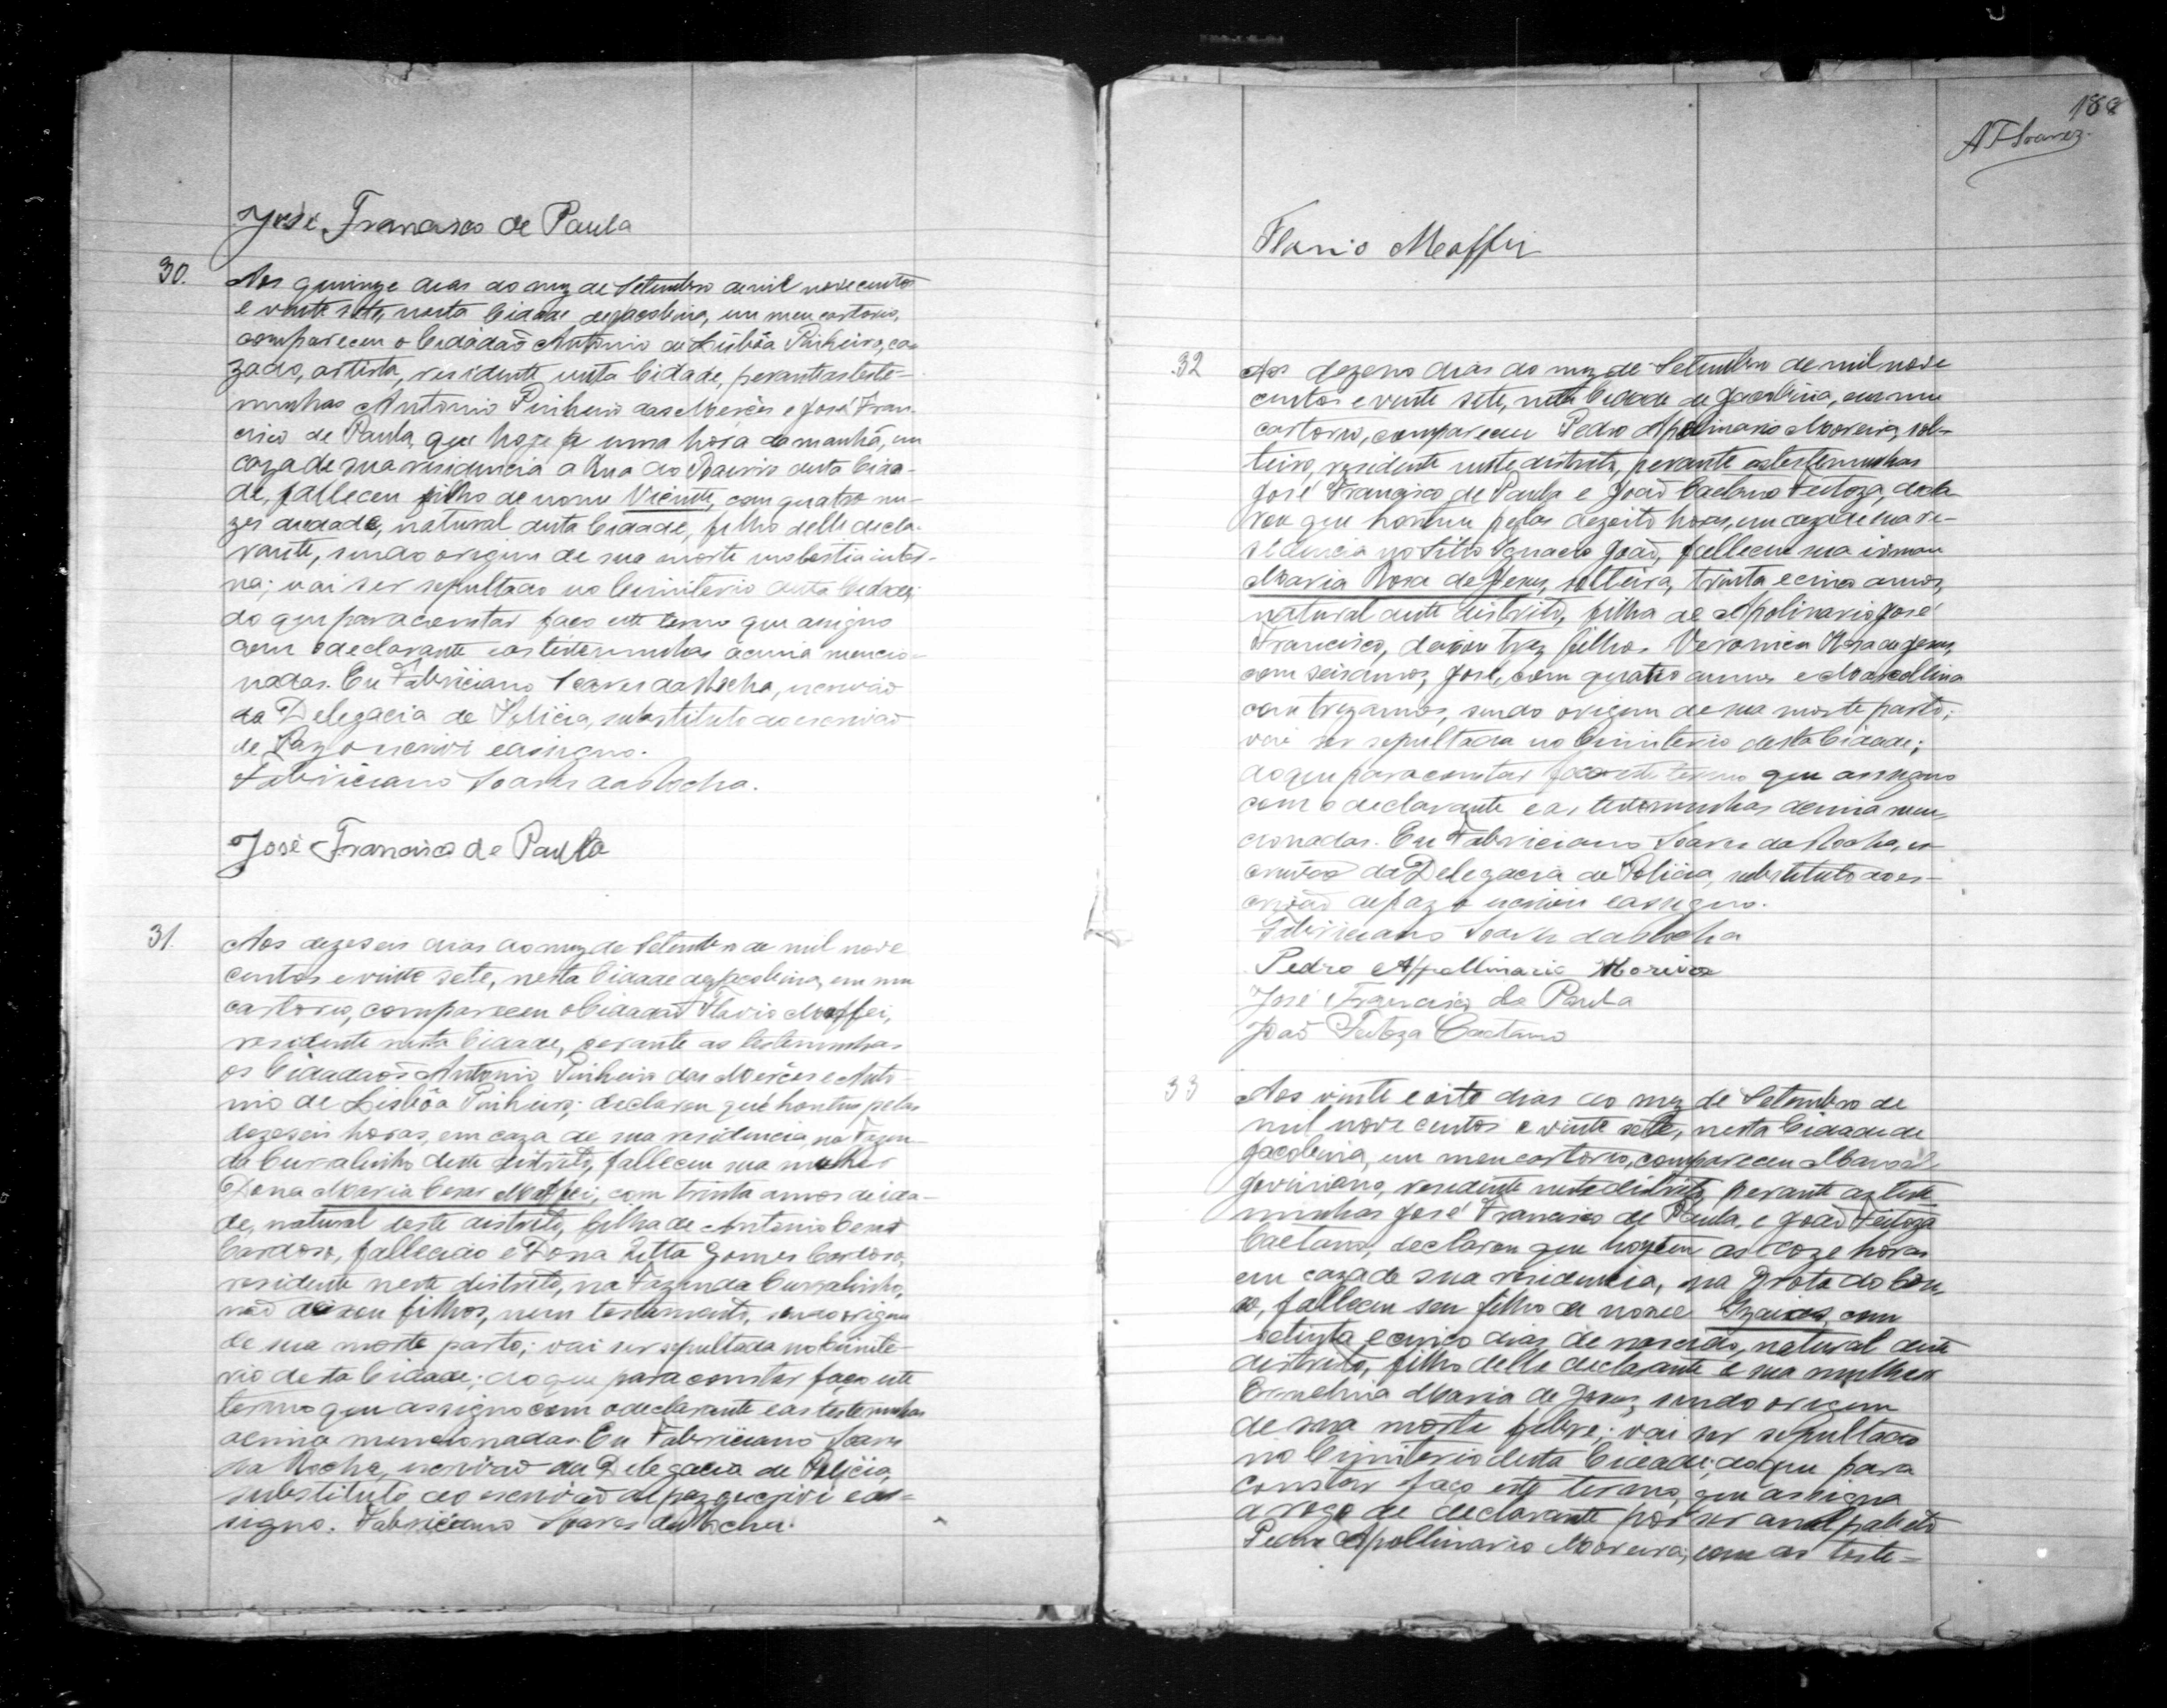 José Francisco de Paula
30.
Aos quinze dias do mez de Setembro de mil nove centos
e vinte sete, nesta Cidade de Jacobina, em meu cartorio,
compareceu o Cidadaõ Antonio de Lisbôa Pinheiro, ca-
zado, artista, residente nesta Cidade, perante as teste-
munhas Antonio Pinheiro das Mercês e José Fran-
cisco de Paula, que hoje a uma hora da manhã, em
caza de sua residencia a Rua do desta Cida-
de, falleceu filho de nome Vicente, com quatro me-
zes de idade, natural desta Cidade, filho delle decla-
rante, sendo origem de sua morte molestia inter-
na; vai ser sepultado no Cimiterio desta Cidade;
do que para constar faço este termo que assigno
com o declarante e as testemunhas acima mencio-
nadas. Eu Fabriciano Soares da Rocha, escrivaõ
da Delegacia de Policia, substituto do escrivaõ
de Paz o escrivi e assigno.
Fabriciano Soares da Rocha.
José Francisco de Paula
31.
Aos dezeseis dias do mez de Setembro de mil nove
centos e vinte sete, nesta Cidade de Jacobina, em meu
cartorio, compareceu o Cidadaõ Flavio Maffei,
residente nesta Cidade, perante as testemunhas
os Cidadaõs Antonio Pinheiro das Mercês e Anto-
nio de Lisbôa Pinheiro; declarou que hontem pelas
dezeseis horas, em caza de sua residencia, na Fazen-
da Curralinho deste districto, falleceu sua mulher
Dona Maria Cesar Maffei, com trinta annos de ida-
de, natural deste districto, filha de Antonio
Cardoso, fallecido e Dona Gomes Cardoso,
residente neste districto, na Fazenda Curralinho,
naõ deixou filhos, nem testamento, sendo origem
de sua morte parto; vai ser sepultada no Cimite-
rio desta Cidade; do que para constar faço este
termo que assigno com o declarante e as testemunhas
acima mencionadas. Eu Fabriciano Soares
da Rocha, escrivaõ da Delegacia de Policia,
substituto do escrivaõ de paz o escrivi e as-
signo. Fabriciano Soares da Rocha.
188
Flavio Maffei
32
Aos dezeno dias do mez de Setembro de mil nove
centos e vinte sete, nesta Cidade de Jacobina, em meu
cartorio, compareceu Pedro Apolinario Moreira, sol-
teiro, residente neste districto, perante as testemunhas
José Francisco de Paula e Joaõ Caetano Feitoza, decla-
rou que hontem pelas dezoito horas, em caza de sua re-
sidencia no Sitio Ignacio Joaõ, falleceu sua irman
Maria Rosa de Jesus, solteira, trinta e cinco annos,
natural deste districto, filha de Apolinario José
Francisco, deixou trez filhos Veronica Rosa de Jesus,
com seis annos, José, com quatro annos e Marcollina
com trez annos, sendo origem de sua morte parto;
vai ser sepultada no Cimiterio desta Cidade;
do que para constar faço este termo que assigno
com o declarante e as testemunhas acima men-
cionadas. Eu Fabriciano Soares da Rocha, es-
crivaõ da Delegacia de Policia, substituto do es-
crivaõ de paz o escrivi e assigno.
Fabriciano Soares da Rocha
Pedro Apollinario Moreira
José Francisco de Paula
Joaõ Feitoza Caetano
33
Aos vinte e oito dias do mez de Setembro de
mil nove centos e vinte sete, nesta Cidade de
Jacobina, em meu cartorio, compareceu Manoel
residente neste districto, perante as teste
munhas José Francisco de Paula e Joaõ Feitoza
Caetano, declarou que as doze horas
em caza de sua residencia, na Grota do
falleceu seu filho de nome Izaias, com
setenta e cinco dias de nascido, natural deste
districto, filho delle declarante e sua mulher
Maria de Jesus, sendo origem
de sua morte febre; vai ser sepultado
no Cimiterio desta Cidade; do que para
constar faço este termo, que assigna
a rogo de declarante por ser analphabeto
Pedro Apollinario Moreira, com as teste-